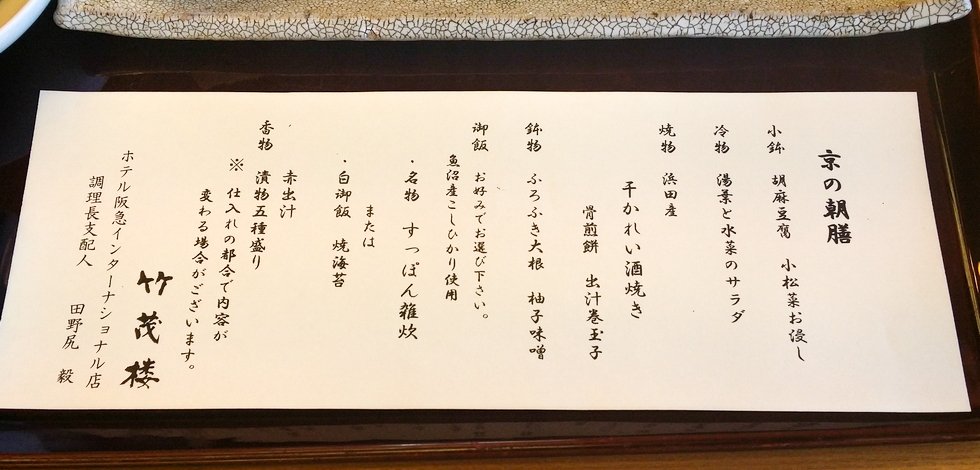 京の朝膳
小鉢　胡麻豆腐　小松菜お浸し
冷物　湯葉と水菜のサラダ
焼物　浜田産
干かれい酒焼き
骨煎餅　出汁巻玉子
鉢物　ふろふき大根　柚子味噌
御飯　お好みでお選び下さい。
魚沼産こしひかり使用
・名物　すっぽん雑炊
または
・白御飯　焼海苔
赤出汁
香物　漬物五種盛り
※　仕入れの都合で内容が
変わる場合がございます。
竹茂楼
ホテル阪急インターナショナル店
調理長支配人　田野尻　毅